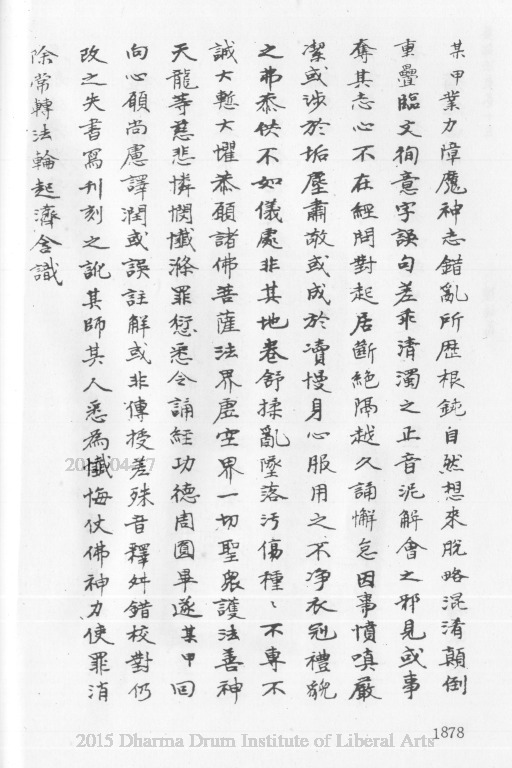 某甲業力障魔神志錯亂所歴根鈍自然想來脫略混淆顛倒
重疊臨文徇意字誤句差乖清濁之正音泥解會之邪見或事
奪其志心不在經問對起居斷絕隔越久誦懈怠因事憤嗔嚴
潔或涉於垢塵肅敬或成於瀆慢身心服用之不淨衣冠禮貌
之弗恭供不如儀處非其地卷舒揉亂墜落污傷種〻不專不
誠大慙大懼恭願諸佛菩薩法界虛空界一切聖衆護法善神
天龍等慈悲憐憫懺滌罪愆悉令誦經功德周圓畢遂某甲回
向心願尚慮譯潤或誤註解或非傳授差殊音釋舛錯校對仍
改之失書寫刊刻之訛其師其人悉為懺悔仗佛神力使罪消
除常轉法輪起濟含識
1878
2015 Dharma Drum Institute of Liberal Arts